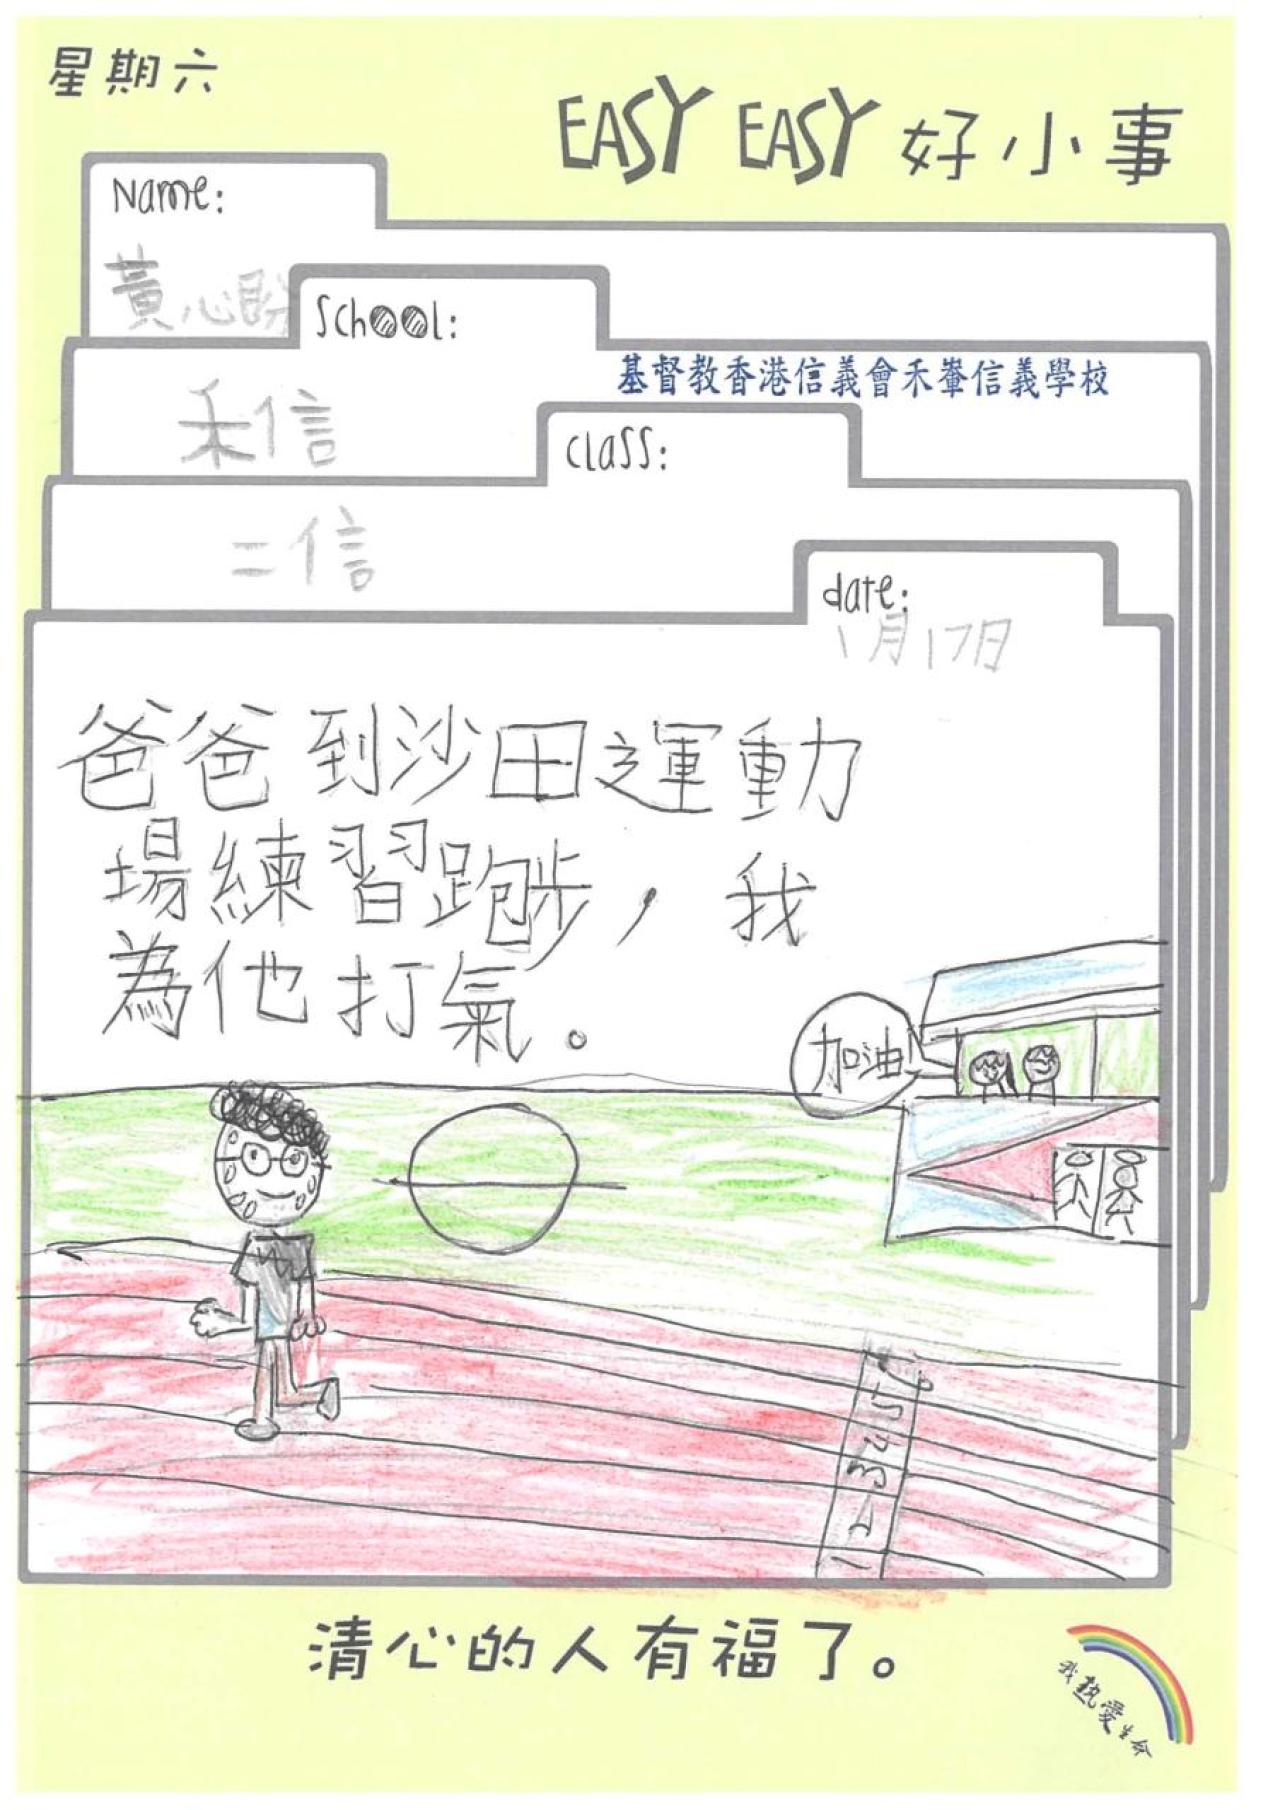 星期六
EASY EASY 好小事
Name:
黃心盼
School:
基督教香港信義會禾輋信義學校
禾信
class:
二信
date:
1月17日
爸爸到沙田運動
場練習跑步，我
為他打氣。
加油!
1 2 3 4 5 6
清心的人有福了。
我熱愛生命